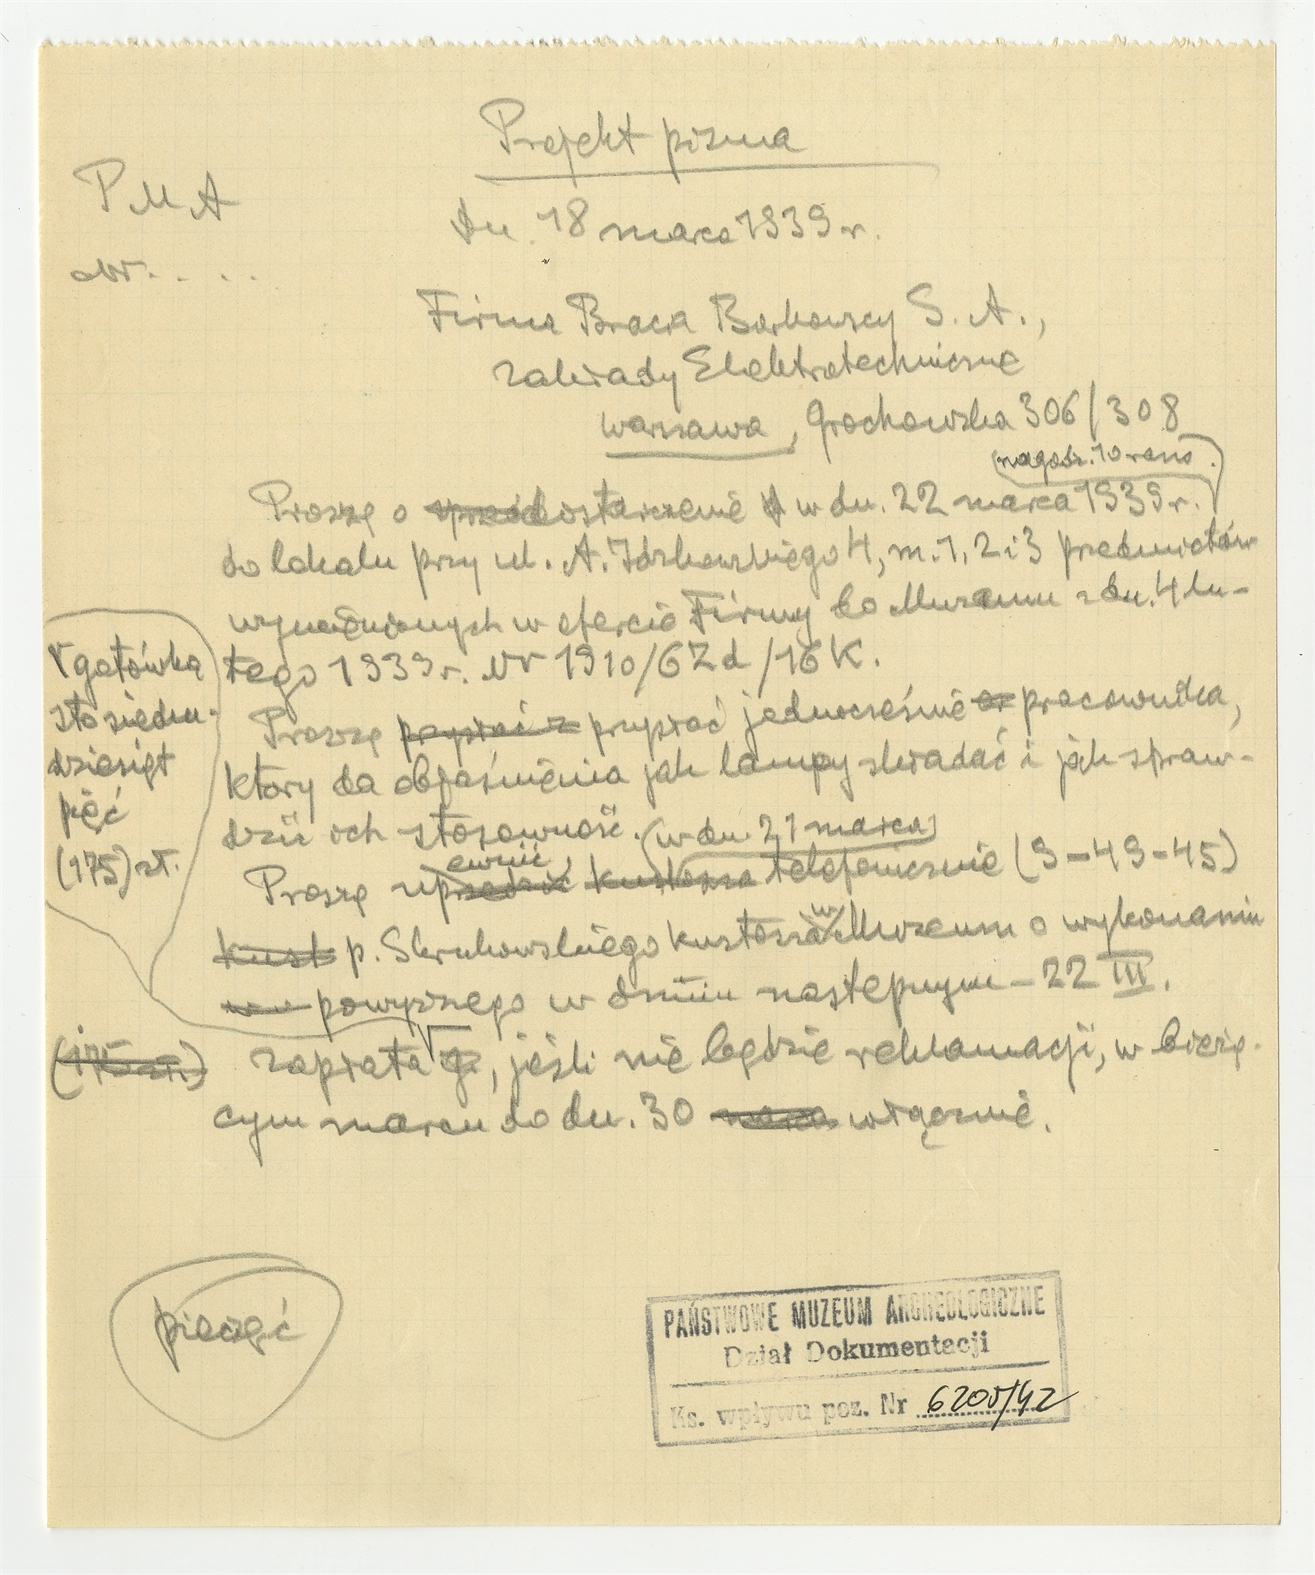 Projekt pisma
P M A
Nr. . . .
dn. 18 marca 1939 r.
Firma Bracia Borkowscy S. A.,
Zakłady Elektrotechniczne
Warszawa, Grochowska 306/308
(na godz. 10 rano.)
Proszę o dostarczenie w dn. 22 marca 1939 r.
do lokalu przy ul. A. Idzkowskiego 4, m. 1, 2 i 3 przedmiotów
wymienionych w ofercie Firmy do Muzeum z dn. 4 lu-
tego 1939 r. Nr 1910/6Zd/16K.
Proszę przysłać jednocześnie pracownika,
który da objaśnienia jak lampy składać i jak spraw-
dzić ich stosowność. (w dn. 21 marca)
Proszę telefonicznie (9-49-45)
p. Skrukowskiego kustosza w Muzeum o wykonaniu
powyższego w dniu następnym - 22 III.
Zapłata, jeśli nie będzie reklamacji, w bieżą-
cym marcu do dn. 30 włącznie.
gotówką
sto siedm-
dziesiąt
pięć
(175) zł.
(175 zł.)
pieczęć
PAŃSTWOWE MUZEUM ARCHEOLOGICZNE
Dział Dokumentacji
Ks. wpływu poz. Nr 6205/42